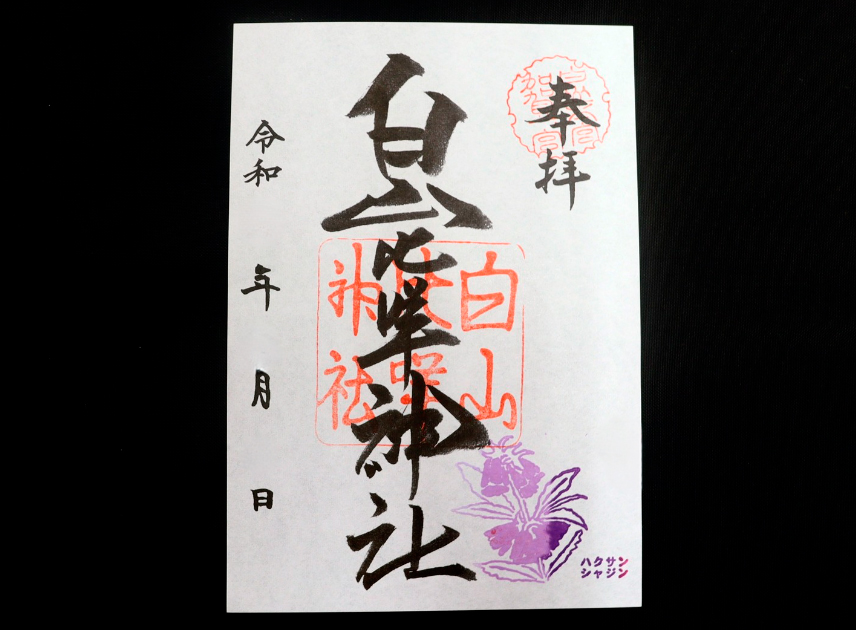 奉拝
白山比咩神社
白山
比咩
神社
令和 年 月 日
ハクサン
シャジン